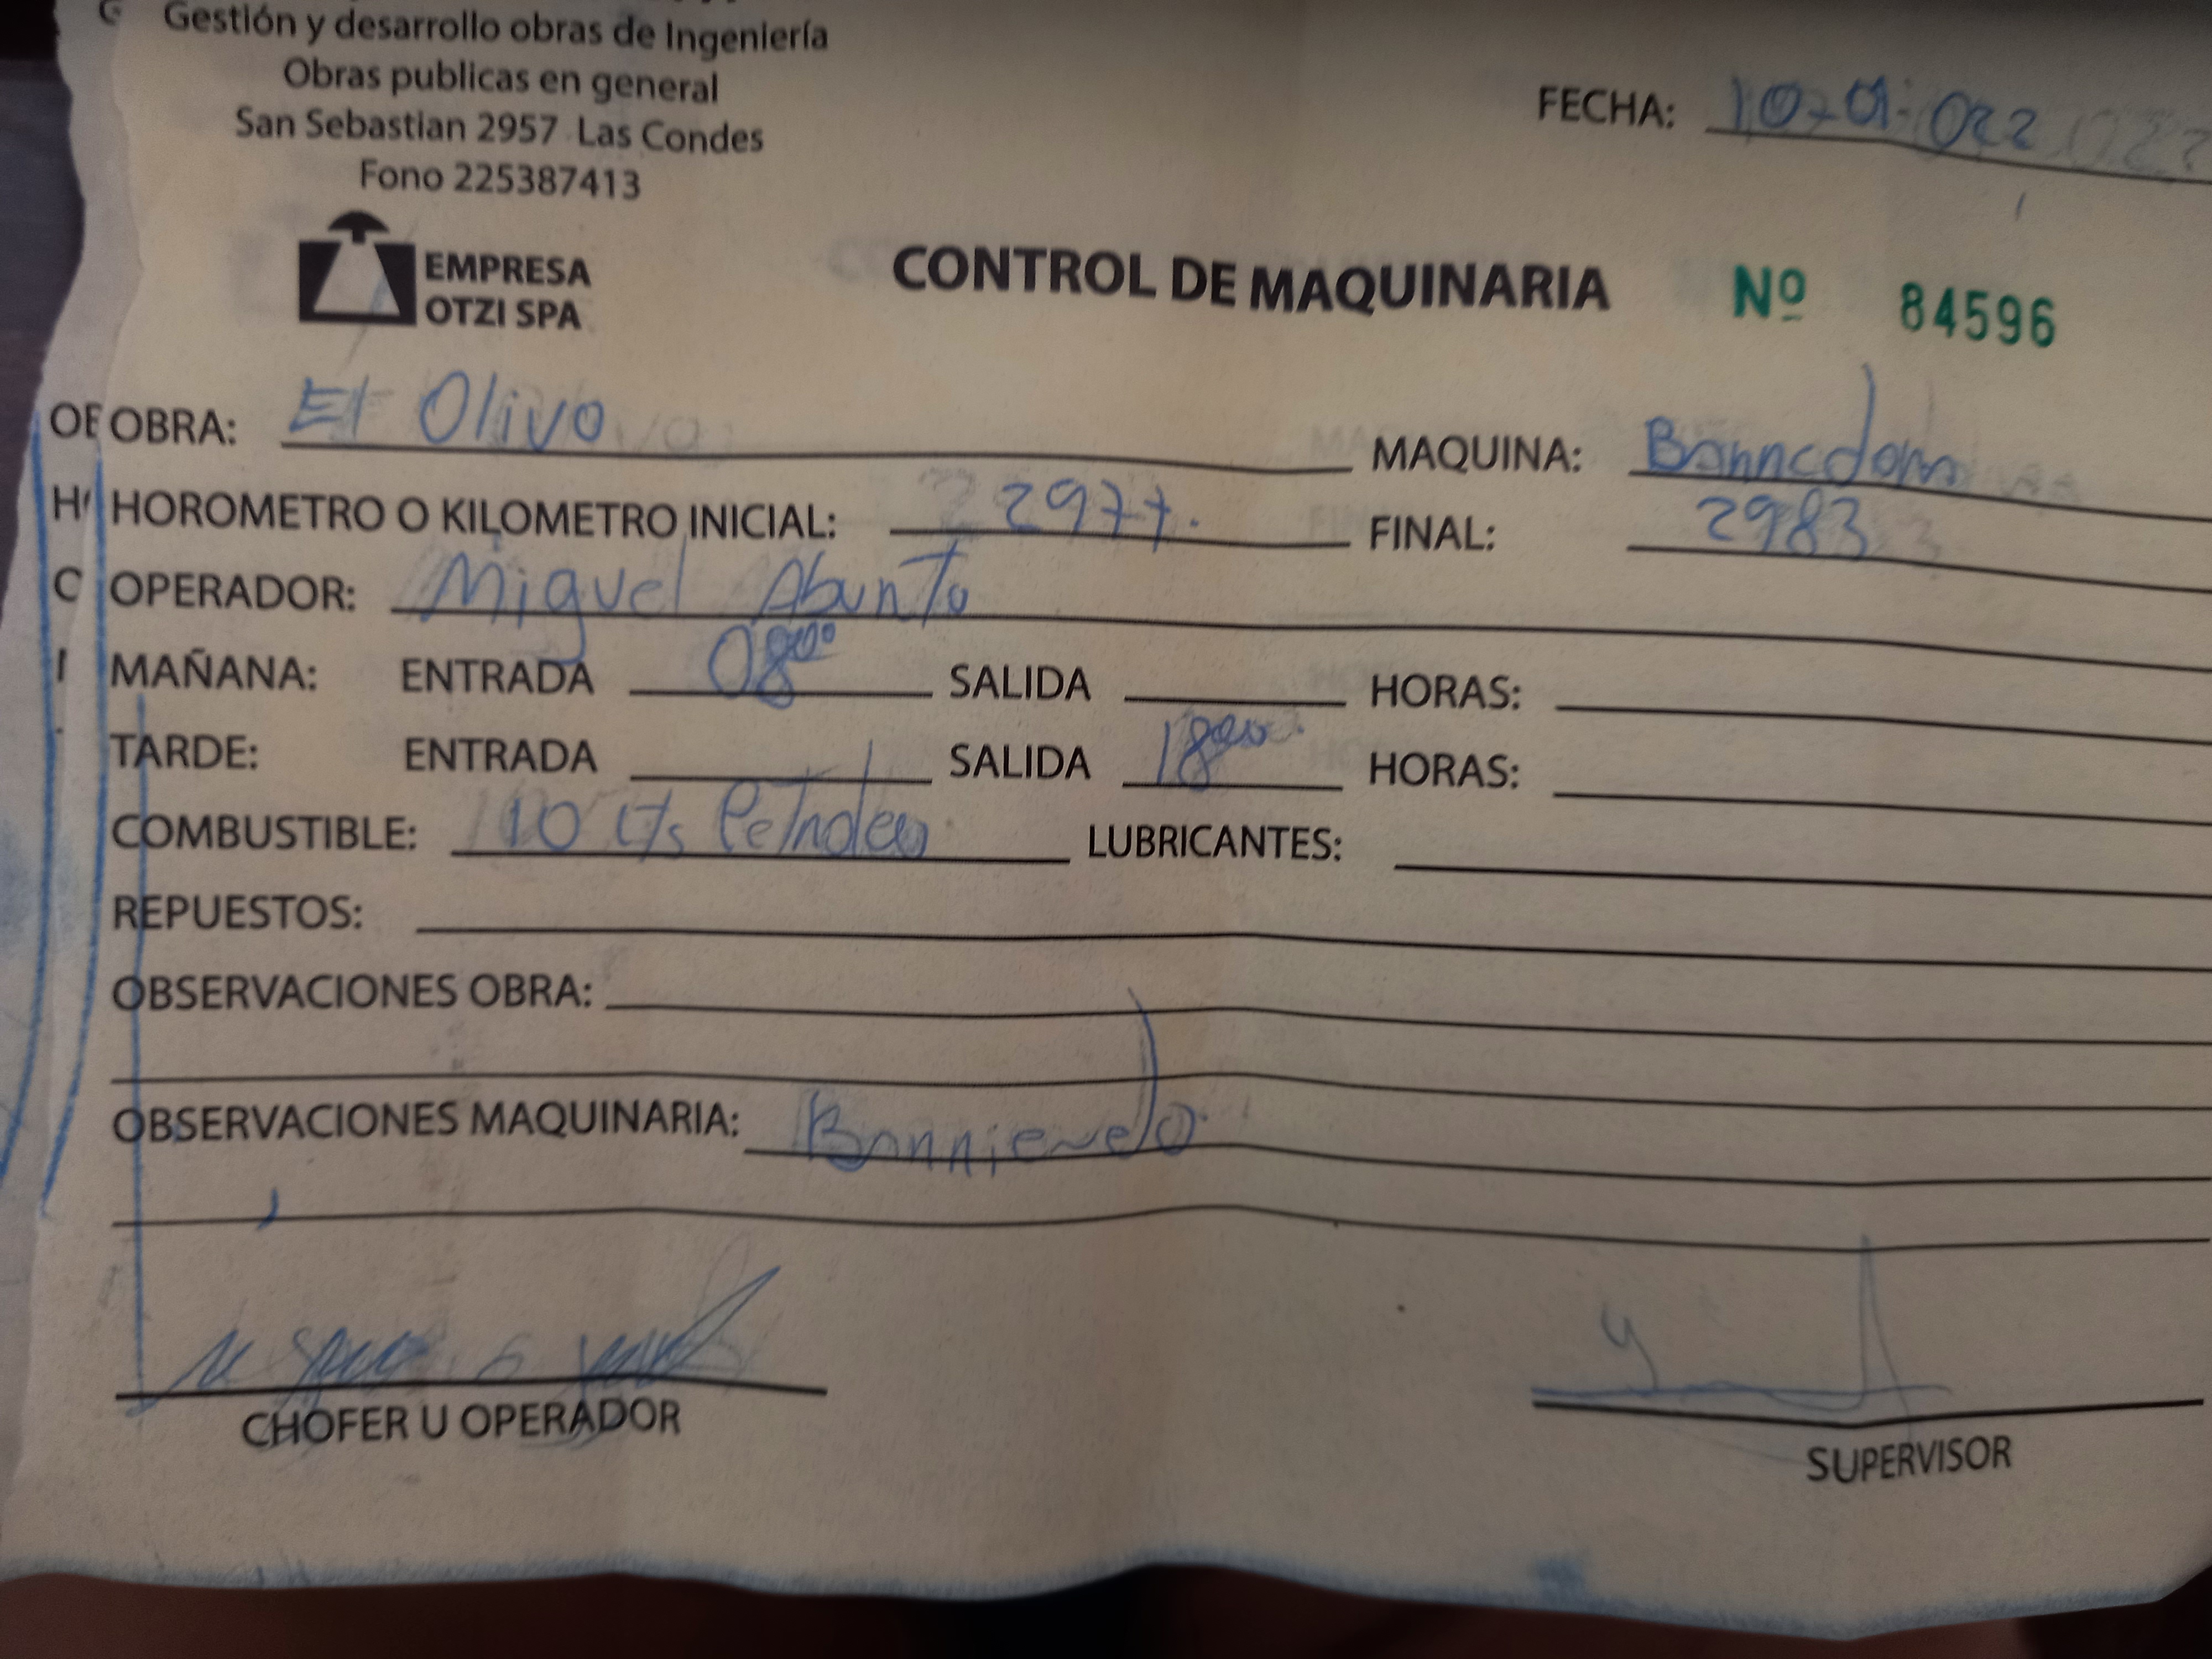 Gestión y desarrollo obras de Ingeniería
Obras publicas en general
San Sebastian 2957 Las Condes
Fono 225387413
FECHA:
EMPRESA
OTZI SPA
CONTROL DE MAQUINARIA Nº 84596
OBRA: El Olivo MAQUINA:
HOROMETRO O KILOMETRO INICIAL: 2977. FINAL: 2983
OPERADOR: Miguel Abunto
MAÑANA: ENTRADA 08:00 SALIDA HORAS:
TARDE: ENTRADA SALIDA 18:00 HORAS:
COMBUSTIBLE: lts LUBRICANTES:
REPUESTOS:
OBSERVACIONES OBRA:
OBSERVACIONES MAQUINARIA: Barriendo
CHOFER U OPERADOR
SUPERVISOR